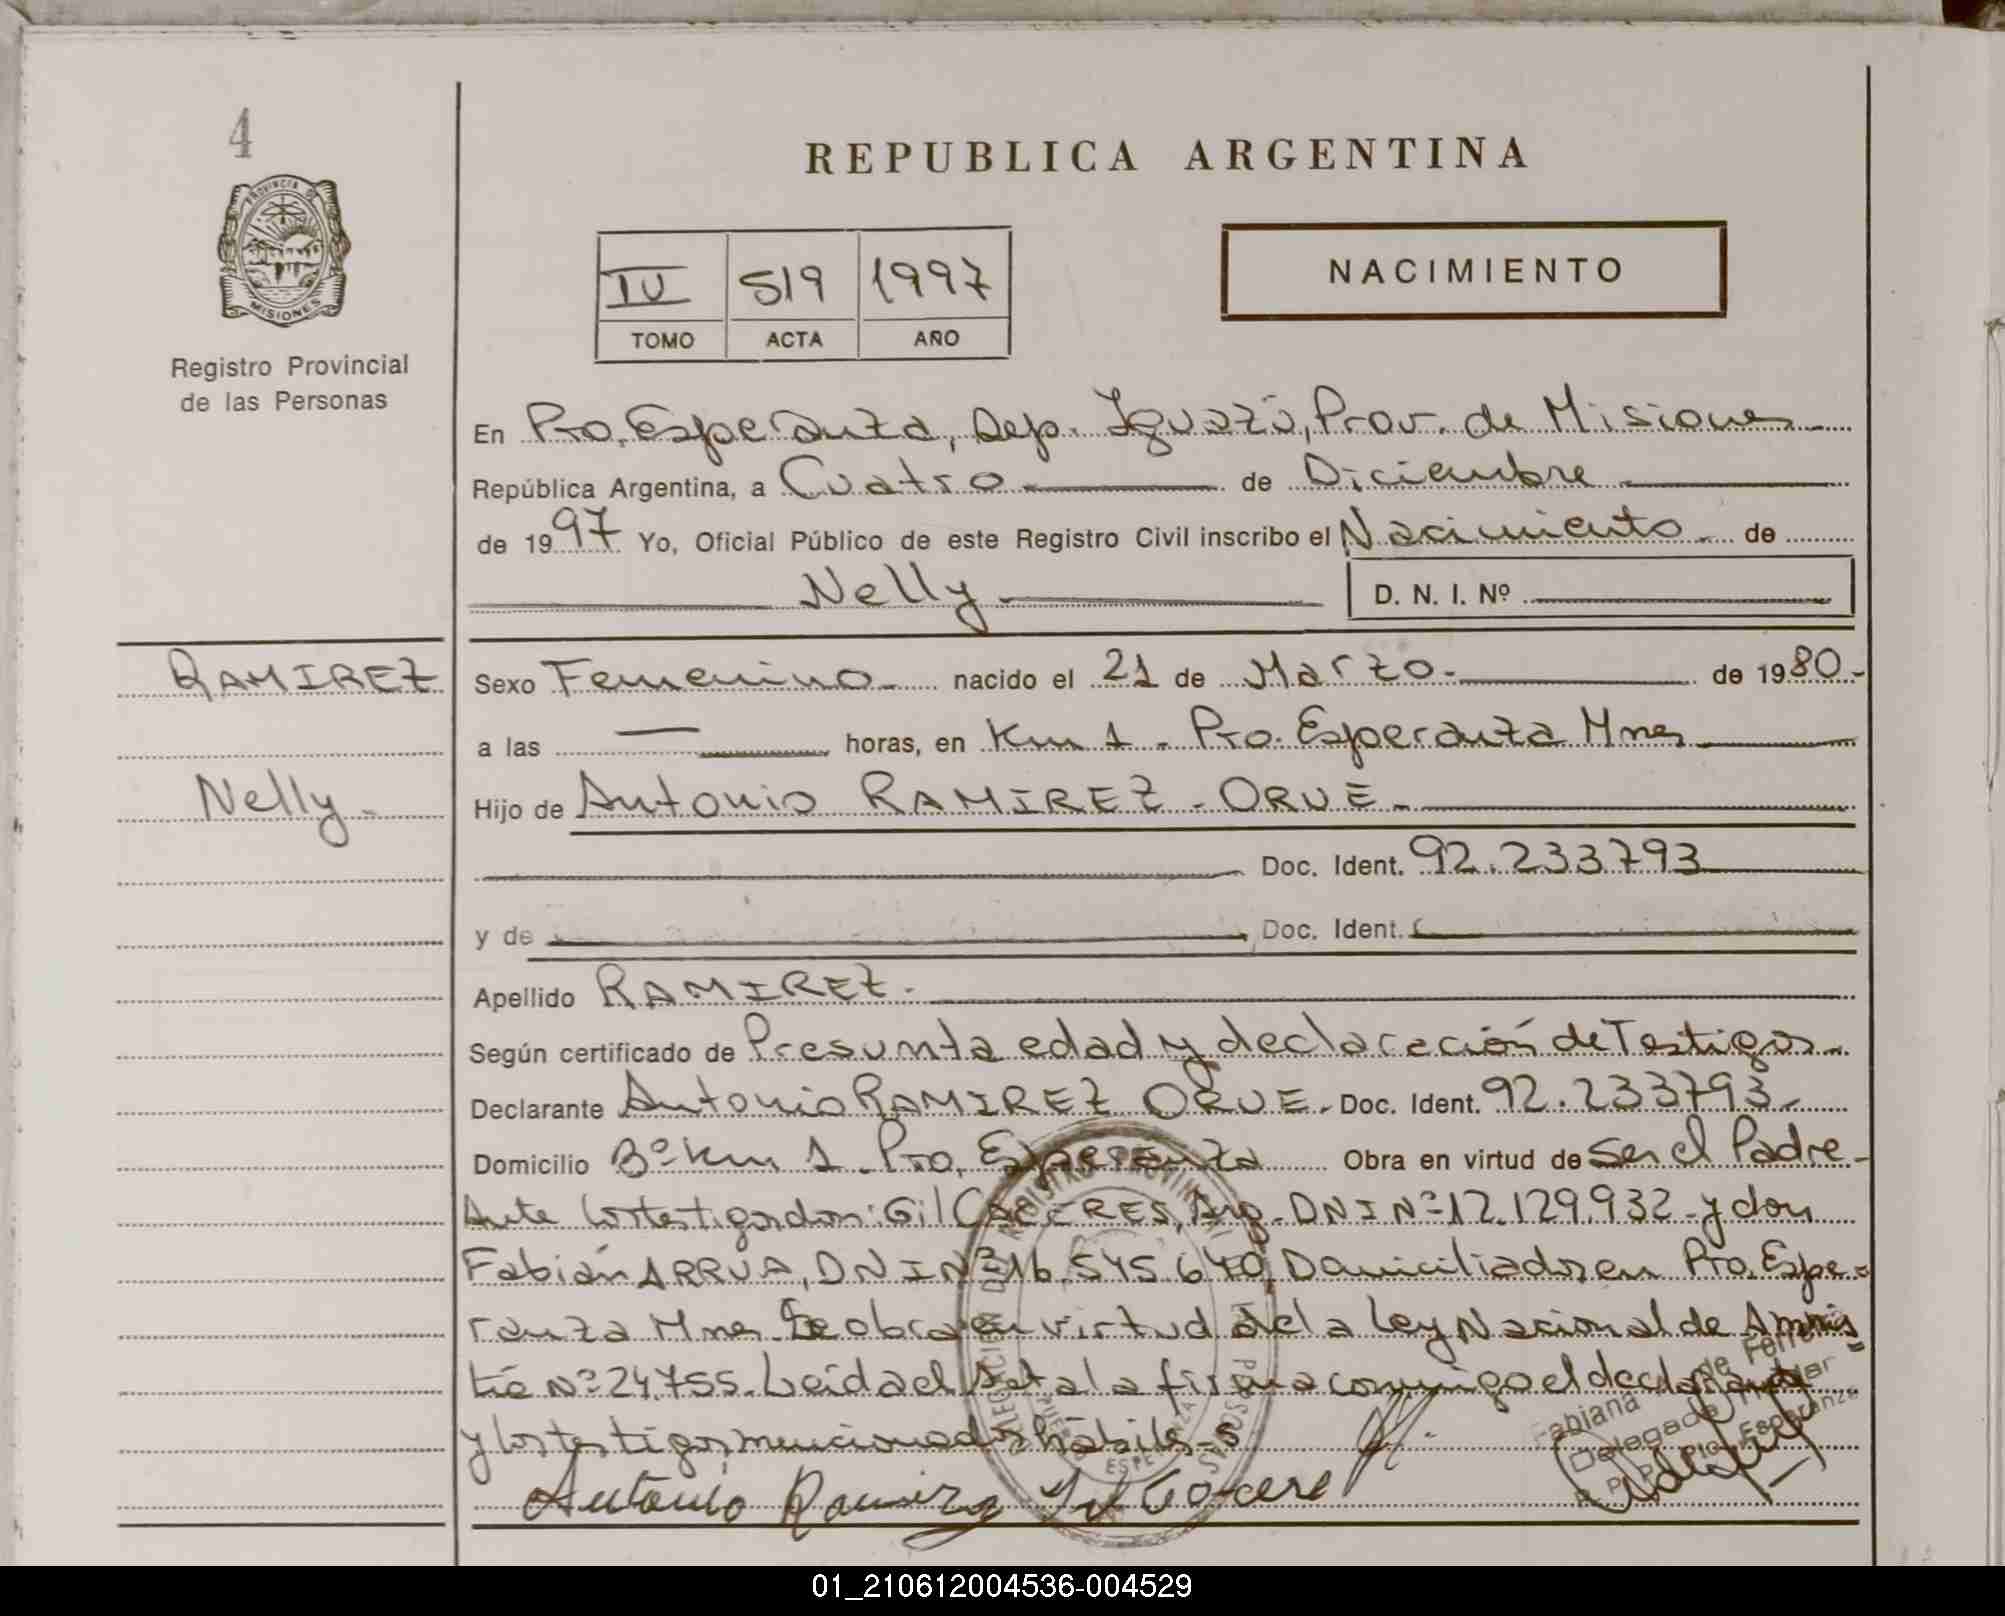 4
PROVINCIA DE
MISIONES
Registro Provincial
de las Personas
REPUBLICA ARGENTINA
IV 519 1997
TOMO ACTA AÑO
NACIMIENTO
En Pto. Esperanza, Dep. Iguazú, Prov. de Misiones
República Argentina, a Cuatro de Diciembre
de 1997 Yo, Oficial Público de este Registro Civil inscribo el Nacimiento de
Nelly D. N. I. Nº
RAMIREZ
Nelly
Sexo Femenino nacido el 21 de Marzo de 1980
a las — horas, en Km 1 - Pto. Esperanza Mnes
Hijo de Antonio RAMIREZ - ORUE
Doc. Ident. 92.233793
y de Doc. Ident.
Apellido RAMIREZ
Según certificado de Presunta edad y declaración de Testigos
Declarante Antonio RAMIREZ ORUE - Doc. Ident. 92.233793
Domicilio Bº Km 1 - Pto. Esperanza Obra en virtud de Ser el Padre -
Ante los testigos don: Gil CACERES, Arg. DNI Nº 12.129.932 - y don
Fabián ARRUA, DNI Nº 16.545.640, Domiciliados en Pto. Espe-
ranza Mnes. Se obra en virtud de la Ley Nacional de Amnis-
tía Nº 24.755. Leída el Acta la firma conmigo el declarante
y los testigos mencionados hábiles
Antonio Ramirez
REGISTRO PROVINCIAL DE LAS PERSONAS
DELEGACION
ESPERANZA
Fabiana de
Delegada Titular
R. P. P. Pto. Esperanza
01_210612004536-004529